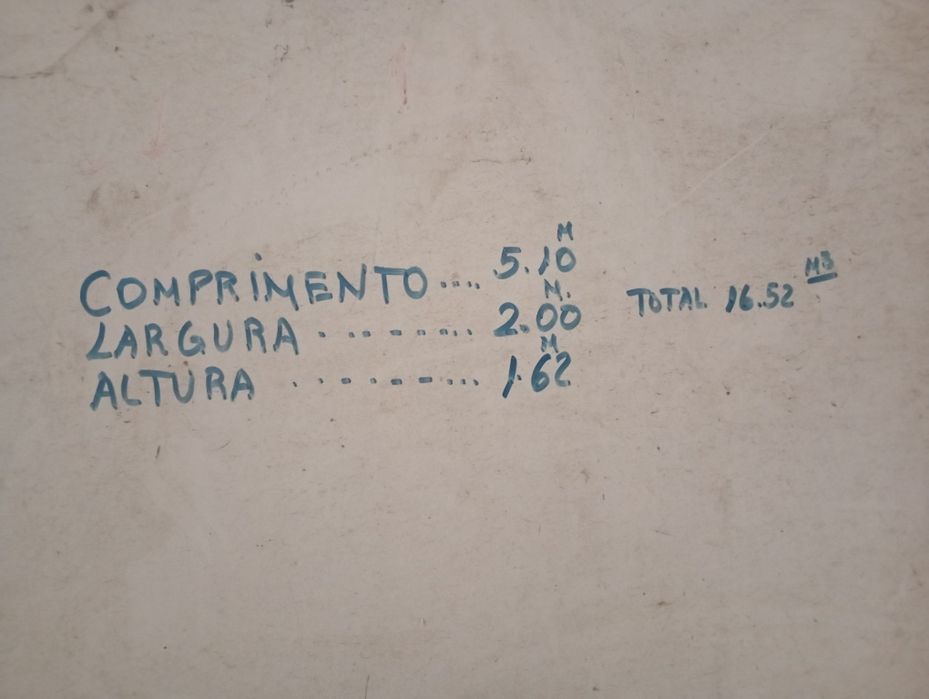 COMPRIMENTO.... 5.10 M
LARGURA ......... 2.00 M.
ALTURA .......... 1.62 M
TOTAL 16.52 M3